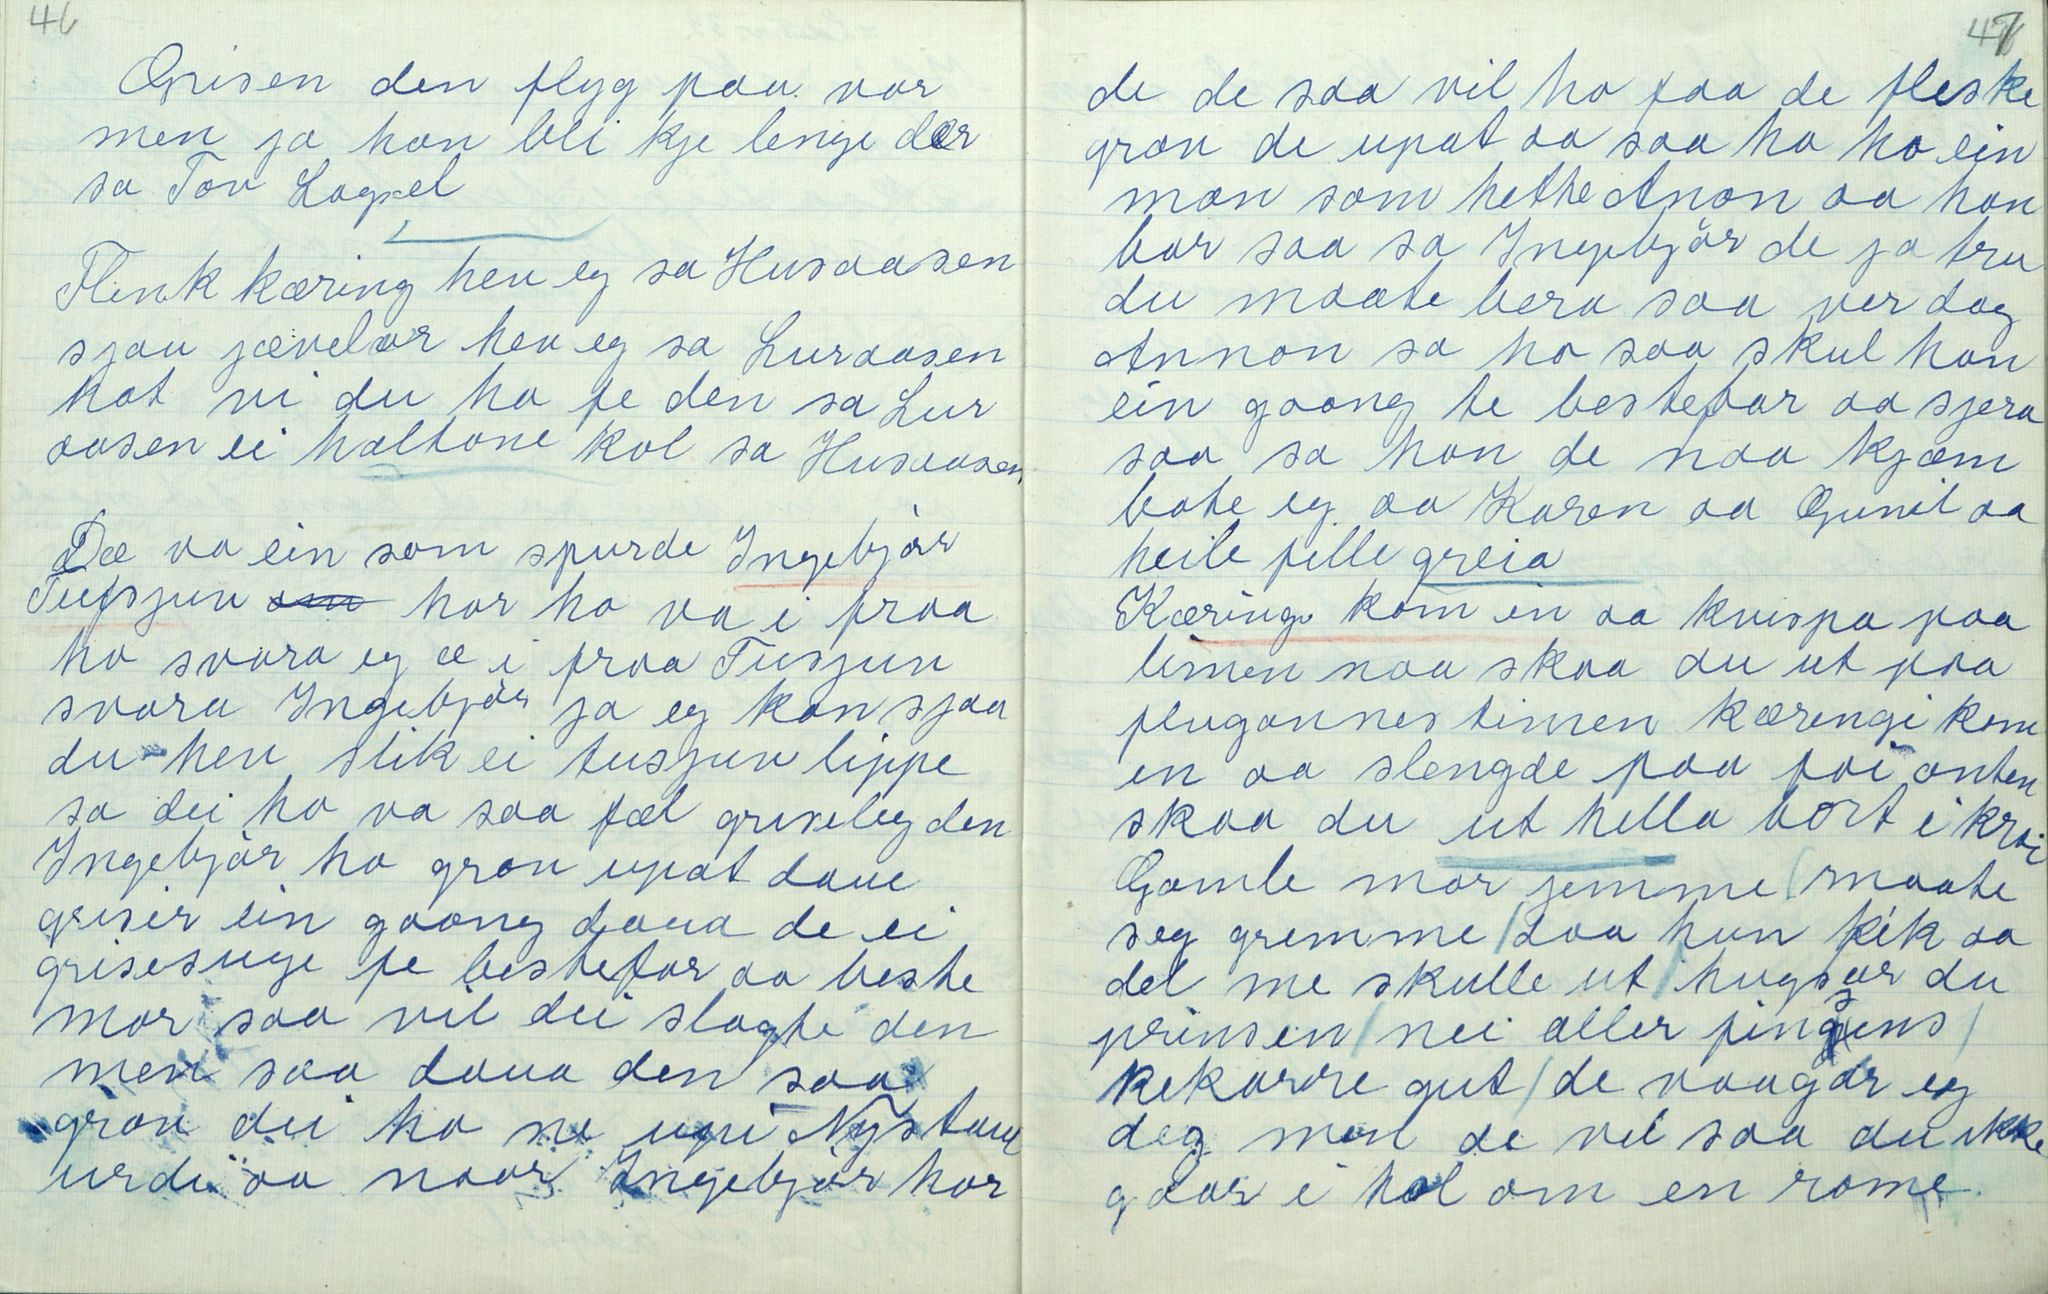 46
Grisen den flyg paa var
men ja han bli kje lenge dær
sa Tov Lagxel
Flink kæring hev eg sa Husaasen
sjau jævelar hev eg sa Luraasen
kot vi du ha fe den sa Lur
aasen ei haltone kol sa Husaasen
Dæ va ein som spurde Ingebjår
Tufsjun hor ho va i fraa
ho svara eg æ i fraa Tusjun
svara Ingebjår ja eg kan sjaa
du hev slik ei tusjun lippe
sa dei ho va saa fæl griseleg den
Ingebjår ho grov upat daue
griser ein goong daua de ei
grisesuge fe bestefar aa beste
mor saa vil dei slagte den
men saa daua den saa
grov dei ho ne upi Nystaul
urdi aa naar Ingebjår hør
47
de de saa vil ho faa de fleske
grov de upat aa saa ha ho ein
man som hethe Anon aa han
bar saa sa Ingebjår de ja tru
du maate bera saa ver dag
Annon sa ho saa skul han
ein goong te bestefar aa sjera
saa sa han de naa kjæm
bate eg aa Karen aa Gunil aa
heile fille greia
Kæringi kom in aa kvispa paa
limen naa skaa du ut paa
flugonnes timen kærengi kom
en aa slengde paa foi anten
skaa du ut hella bort i kroi
Gamle mor jemme / maate
seg gremme / Daa hun fik aa
del me skulle ut / hugsar du
prinsen / nei aller pingsens /
kekarre gut / de vaagar eg
deg men de vil saa du ikke
gaar i hol om en rome